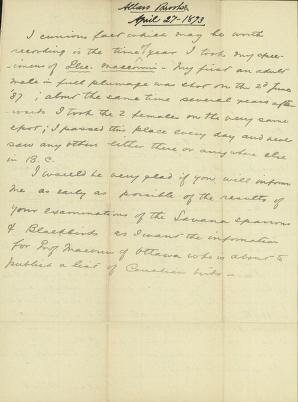 Allan Brooks
April 27 - 1893
A curious fact which may be worth
recording is the time of year I took my speci-
mens of Dec. maccownii - My first an adult
male in full plumage was shot on the 2d June
'87; about the same time several years after-
wards I took the 2 females on the very same
spot; I passed this place every day and never
saw any others either there or anywhere else
in B.C.
I would be very glad if you will inform
me as early as possible of the results of
your examinations of the Savana sparrows
& Blackbirds as I want the information
for Prof Macoun of Ottawa who is about to
publish a list of Canadian birds